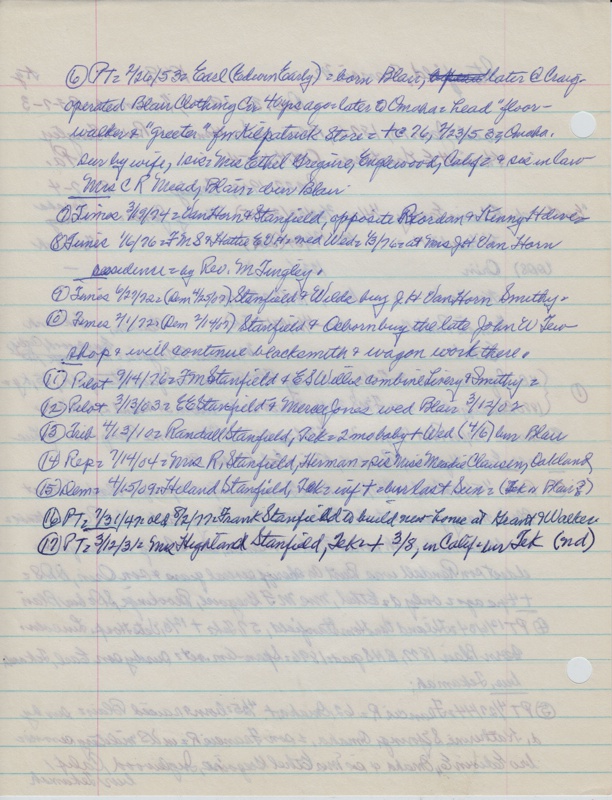 ⑥ PT= 7/26/53= Earl (Edwin Early) = born Blair, later @ Craig-
operated Blair Clothing Co. 40 yrs ago = later to Omaha = head "floor-
walker & "greeter" for Kilpatrick Store = + @ 76, 7/23/53, Omaha.
Sur by wife, 1 sis: Mrs Ethel Gregine, Englewood, Calif = & sis in law
Mrs C R Mead, Blair = bur Blair
⑦ Times 3/19/74 = Van Horn & Stanfield, opposite Reordan & Kenny Hdwe =
⑧ Times 1/6/76 = F M S & Hattie E V H = wed Wed = 1/3/76 = at Mrs J H Van Horn
residence = by Rev. M Tingley.
⑨ Times 6/27/72 = (Dem 4/25/07) Stanfield & Wilde buy J H Van Horn Smithy.
⑩ Times 2/1/72 = (Dem 2/14/07) Stanfield & Osborn buy the late John W Tew
shop & will continue blacksmith & wagon work there.
⑪ Pilot 9/14/76 = F M Stanfield & E S Willis combine Livery & Smithy =
⑫ Pilot 3/13/03 = E E Stanfield & Mercy Jones wed Blair 3/12/02
⑬ Trib 4/13/10 = Randall Stanfield, Tek = 2 mo baby + Wed (4/6) bur Blair
⑭ Rep = 7/14/04 = Mrs R. Stanfield, Herman = sis Miss Meadie Clausen, Oakland
⑮ Dem = 4/15/09 = Heland Stanfield, Tek = inf + = bur last Sun = (Tek or Blair?)
⑯ PT = 7/31/47 = old 8/2/77 = Frank Stanfield to build new home at Grant & Walker
⑰ PT = 3/12/31 = Mrs Highland Stanfield, Tek = + 3/8, in Calif = bur Tek (nd)